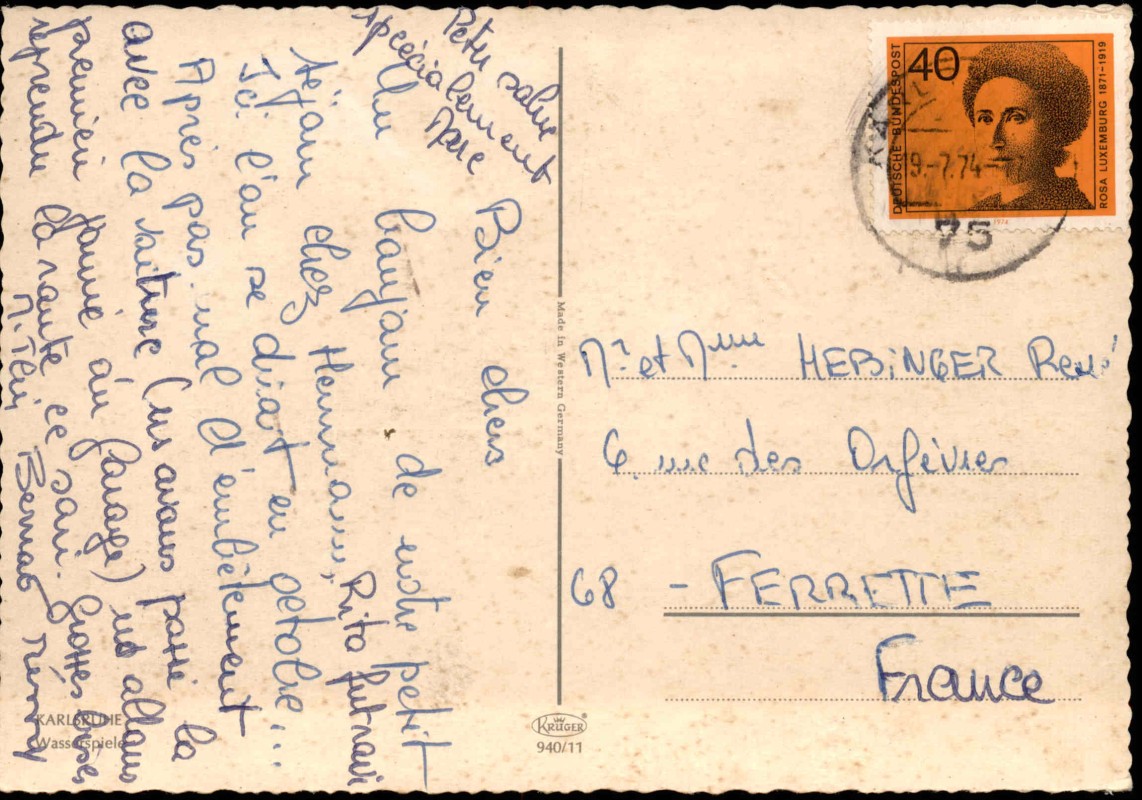 Petit salut
spécialement
Bien chers
Un bonjour de notre petit
séjour chez Hermann, Rita fut ravi
Ici l'on se dirait en
Après pas mal d'embêtement
avec la voiture (ns avons passé la
première journée au garage) ns allons
reprendre la route ce soir. Grosses bises
Bernard Thierry
KARLSRUHE
Wasserspiele
Made in Western Germany
KRÜGER
940/11
40
DEUTSCHE BUNDESPOST
ROSA LUXEMBURG 1871–1919
1974
9.-7.74
75
Mr et Mme HEBINGER René
6, rue des Orfèvres
68 - FERRETTE
France